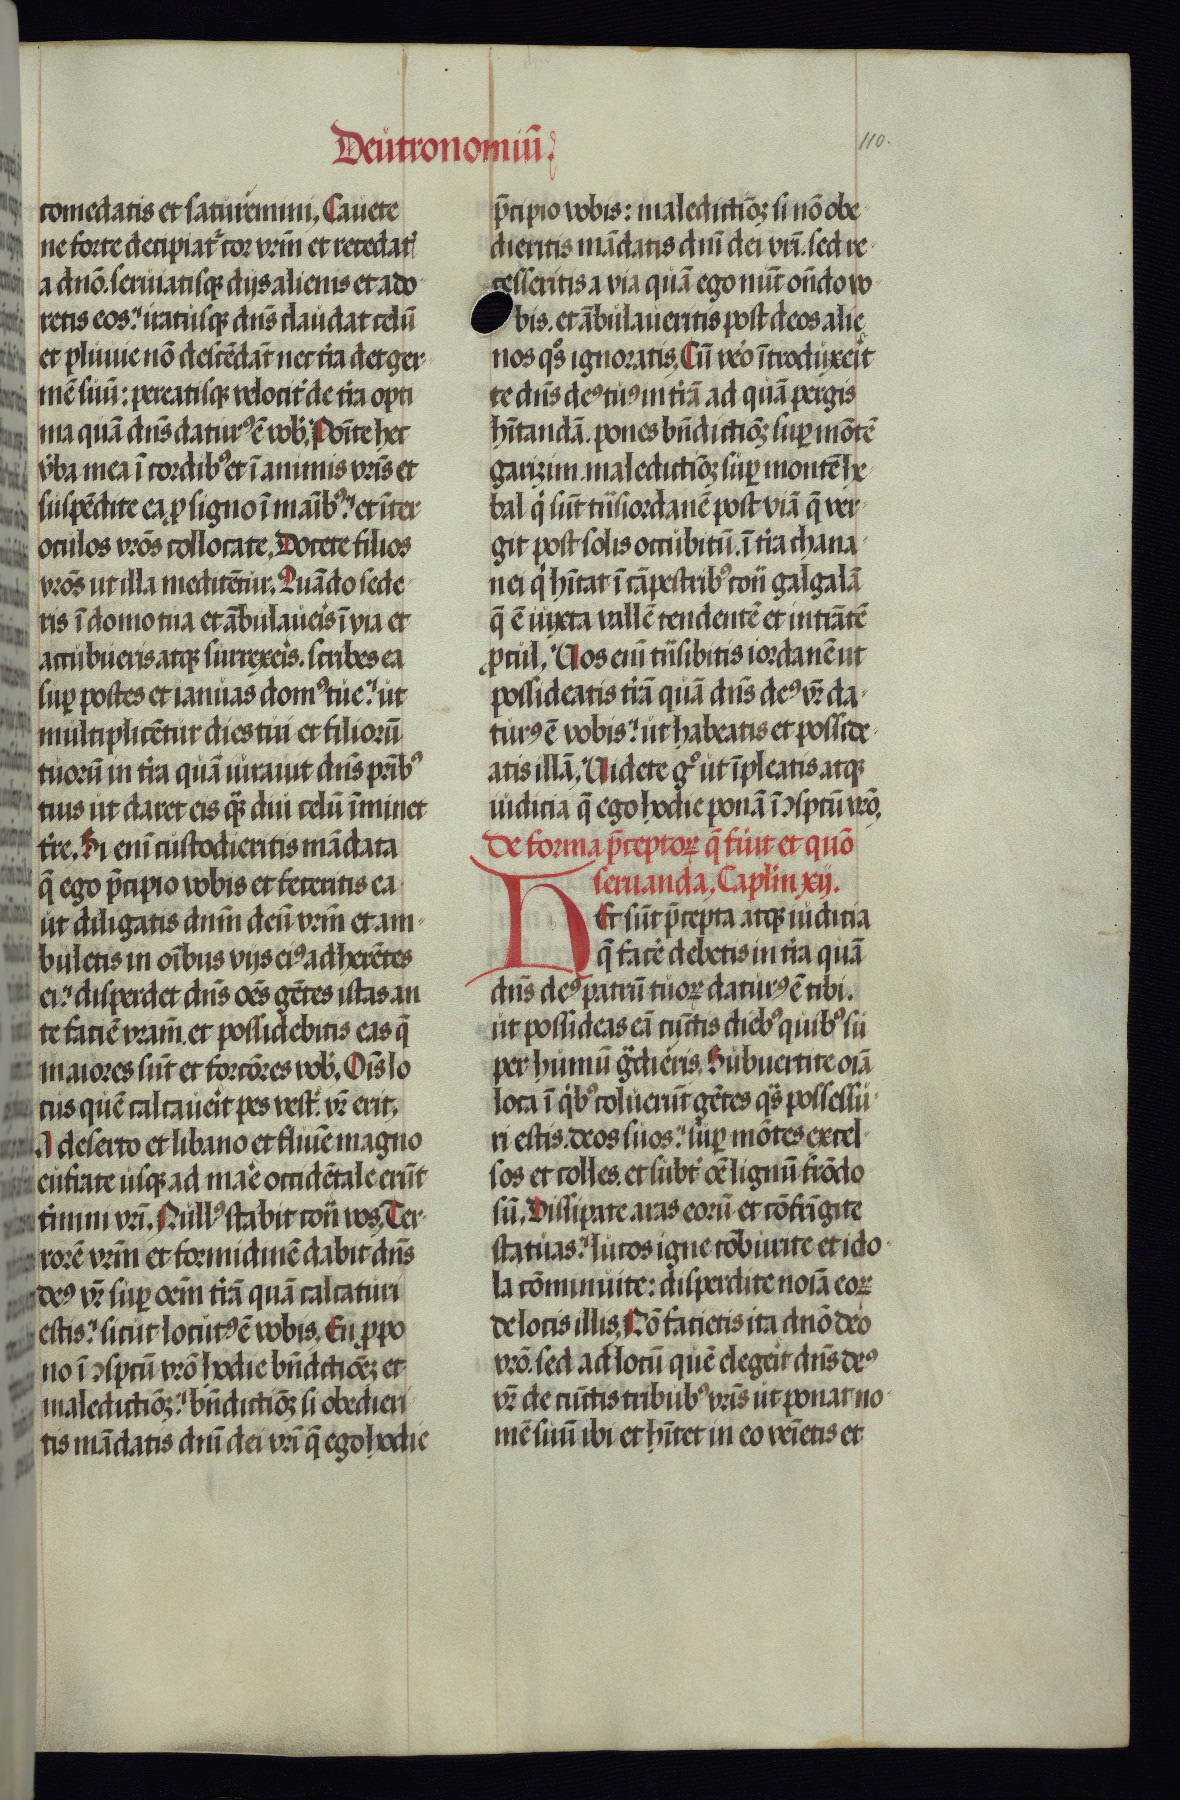 Deutronomiū.
110.
comedatis et saturemini, Cauete
ne forte decipiat᷑ cor vr̄m et recedat᷑
a dn̄o. seruiatisqꝫ dijs alienis et ado
retis eos. iratusqꝫ dn̄s claudat celū
et pluuie nō descēdāt nec t̄ra det ger
mē suū: pereatisqꝫ velocit᷑ de t̄ra opti
ma quā dn̄s daturꝰ ē vob᷑, Ponīte hec
v̄ba mea ī cordibꝰ et ī animis vr̄is et
suspēdite ea ꝓ signo ī maībꝰ. et īter
oculos vr̄os collocate, Docete filios
vr̄os ut illa meditētur, Quādo sede
ris ī domo tua et ābulaueis ī via et
accubueris atqꝫ surrexeis. scribes ea
suꝑ postes et ianuas domꝰ tue. ut
multiplicētur dies tui et filiorū
tuorū in t̄ra quā iurauit dn̄s pr̄ibꝰ
tuis ut daret eis qᷓꝫ diu celū īminet
t̄re, Si enī custodieritis mādata
q̄ ego p̄cipio vobis et feceritis ea
ut diligatis dnm̄ deū vr̄m et am
buletis in oībus vijs eiꝰ adherētes
ei. disperdet dn̄s oēs gētes istas an
te faciē vram̄. et possidebitis eas q̄
maiores sūt et forcōres vob᷑, Oīs lo
cus quē calcaueit pes vest᷑. vr̄ erit,
A deserto et libano et fluuē magno
eufrate usqꝫ ad mare occidētale erūt
t̄mini vr̄i, Nullꝰ stabit cont̄ vos, Ter
rorē vr̄m et formidinē dabit dn̄s
deꝰ vr̄ suꝑ oēm t̄rā quā calcaturi
estis. sicut locutꝰ ē vobis, En ꝓpo
no ī ꝯspcū vr̄o hodie bn̄dictiōeꝫ et
maledictiōꝫ. bn̄dictiōꝫ si obedieri
tis mādatis dn̄i dei vr̄i q̄ ego hodie
p̄cipio vobis: maledictiōꝫ si nō obe
dieritis mādatis dn̄i dei vr̄i. sed re
cesseritis a via quā ego nūc on̄do vo
bis. et ābulaueritis post deos alie
nos qͦs ignoratis, Cū vero ītroduxeit
te dn̄s deꝰ tuꝰ in t̄rā ad quā pergis
hītandā. pones bn̄dictiōꝫ suꝑ mōtē
garizim. maledictiōꝫ suꝑ montē he
bal qͥ sūt trās iordanē post viā q̄ ver
git post solis occubitū. ī t̄ra chana
nei qͥ hītat ī cāpestribꝰ cont̄ galgalā
q̄ ē iuxta vallē tendentē et intrātē
ꝓcul, Vos enī trāsibitis iordanē ut
possideatis t̄rā quā dn̄s deꝰ vr̄ da
turꝰ ē vobis. ut habeatis et posside
atis illā, Videte gͦ ut īpleatis atqꝫ
iudicia q̄ ego hodie ponā ī ꝯspcū vr̄o,
De forma p̄ceptoꝝ q̄ fuit et quō
seruanda, Caplm̄ xij.
Hec sūt p̄cepta atqꝫ iudicia
q̄ facere debetis in t̄ra quā
dn̄s deꝰ patrū tuoꝝ daturꝰ ē tibi.
ut possideas eā cūctis diebꝰ quibꝰ su
per humū gᷓdieris, Subuertite oīa
loca ī qͥbꝰ coluerūt gētes qᷓs possessu
ri estis. deos suos. suꝑ mōtes excel
sos et colles. et subt᷑ oē lignū frōdo
sū, Dissipate aras eorū et cōfrīgite
statuas. lucos igne cōburite et ido
la cōminuite: disperdite noīa eoꝝ
de locis illis, Nō facietis ita dn̄o deo
vr̄o. sed ad locū quē elegeit dn̄s deꝰ
vr̄ de cūctis tribubꝰ vr̄is ut ponat no
mē suū ibi et hītet in eo veīetis et